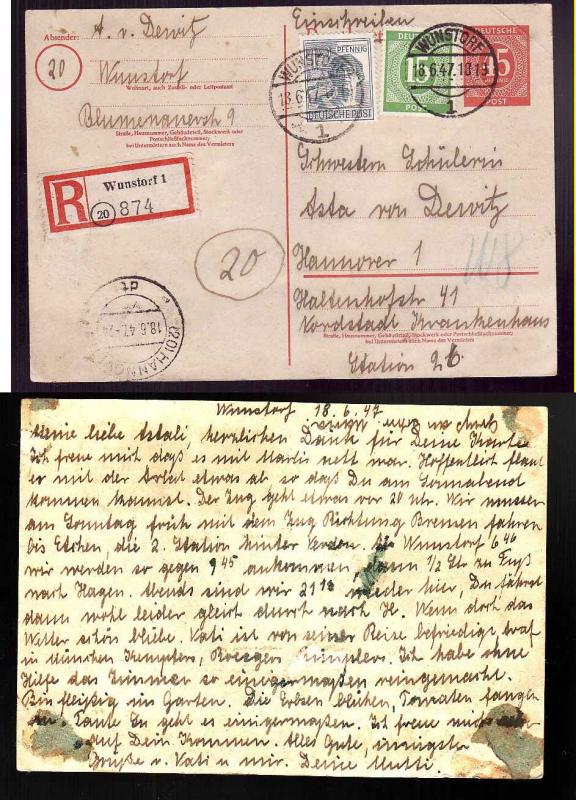 Absender: A. v. Dewitz
20
Wunstorf
Wohnort, auch Zustell- oder Leitpostamt
Blumenauerstr 9
Straße, Hausnummer, Gebäudeteil, Stockwerk oder
Postschließfachnummer,
bei Untermietern auch Name des Vermieters
R Wunstorf 1
(20) 874
(20) HANNOV
18.6.47
Einschreiben
PFENNIG
DEUTSCHE POST
15
POST
DEUTSCHE
45
PFENNIG
POST
WUNSTORF
18.6.47
1
WUNSTORF
18.6.47.18
1
Schwestern Schülerin
Asta von Dewitz
Hannover 1
Haltenhofstr 41
Straße, Hausnummer, Gebäudeteil, Stockwerk oder Postschließfachnummer,
bei Untermietern auch Name des Vermieters
Nordstadt Krankenhaus
Station 26
20
Wunstorf 18.6.47
Meine liebe Astali, herzlichen Dank für Deine Karte
Ich freue mich daß es mit Marlis nett war. Hoffentlich flaut
er mit der Arbeit etwas ab so daß Du am Sonnabend
kommen kannst. Der Zug geht etwas vor 20 Uhr. Wir müssen
am Sonntag früh mit dem Zug Richtung Bremen fahren
bis, die 2. Station hinter Verden. Ab Wunstorf 6 46
wir werden so gegen 9 45 ankommen, dann 1/2 Std zu Fuß
nach Hagen. Abends sind wir 21 18 wieder hier, Du fährst
dann wohl leider gleich durch nach H. Wenn doch das
Wetter schön bliebe. Vati ist von seiner Reise befriedigt, traf
in München. Ich habe ohne
Hilfe das Zimmer so einigermaßen reingemacht.
Bin fleißig im Garten. Die Erbsen blühen, Tomaten fangen
an. Tante geht es einigermaßen. Ich freue mich
auf Dein Kommen. Alles Gute, innigste
Grüße v. Vati u mir. Deine Mutti.